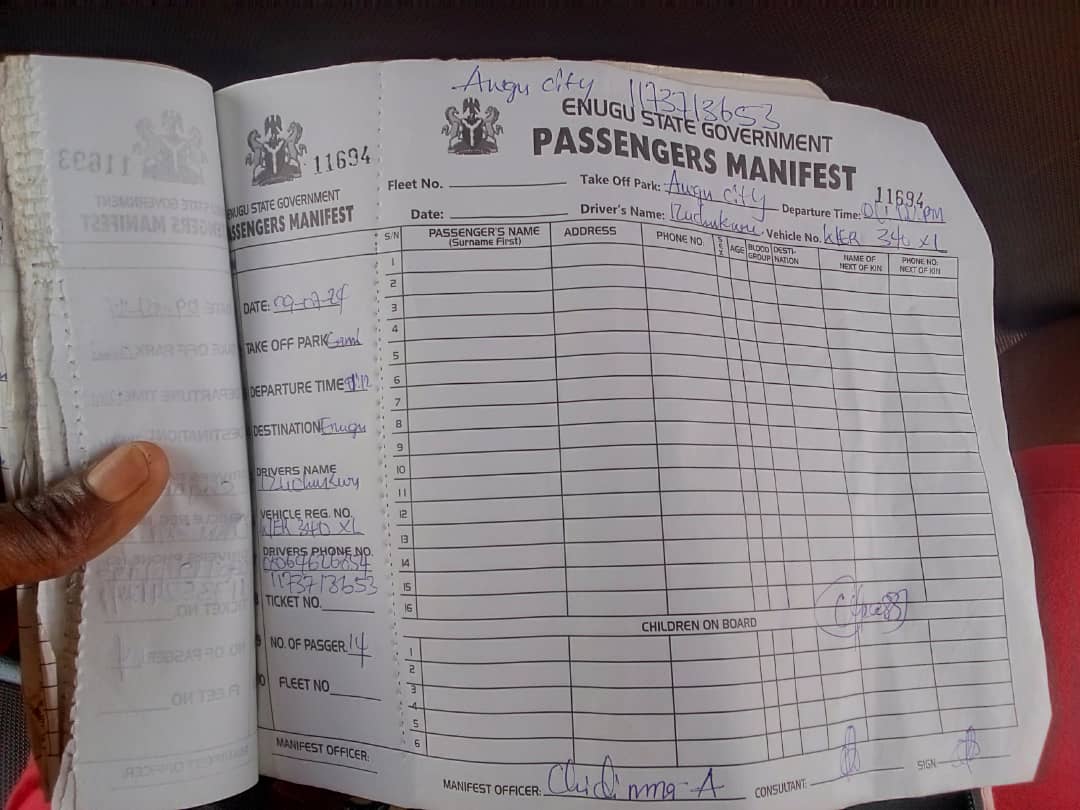 11693
11694
ENUGU STATE GOVERNMENT
PASSENGERS MANIFEST
DATE: 09-07-24
TAKE OFF PARK
DEPARTURE TIME
DESTINATION Enugu
DRIVERS NAME
VEHICLE REG. NO.
KER 340 XL
DRIVERS PHONE NO.
1173713653
TICKET NO.
NO. OF PASGER. 14
FLEET NO
MANIFEST OFFICER:
Awgu city 1173713653
ENUGU STATE GOVERNMENT
PASSENGERS MANIFEST
11694
Fleet No. Take Off Park: Awgu city Departure Time:
Date: Driver's Name: Vehicle No. KER 340 XL
S/N PASSENGER'S NAME (Surname First) ADDRESS PHONE NO. SEX AGE BLOOD GROUP DESTI-NATION NAME OF NEXT OF KIN PHONE NO. NEXT OF KIN
1
2
3
4
5
6
7
8
9
10
11
12
13
14
15
16
CHILDREN ON BOARD
1
2
3
4
5
6
MANIFEST OFFICER: Chidinma-A CONSULTANT: SIGN